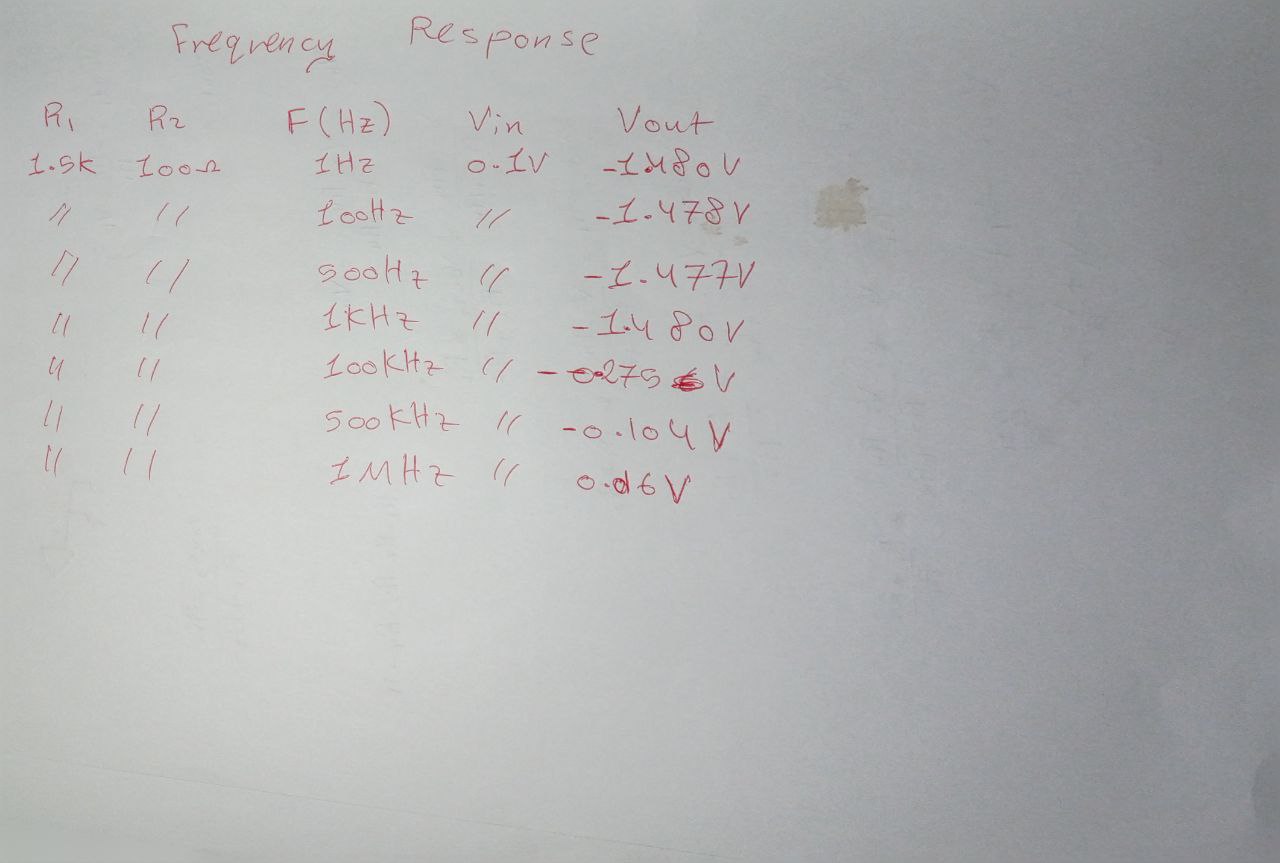 Frequency Response
R1 R2 F(Hz) Vin Vout
1.5k 100Ω 1Hz 0.1V -1.480V
" " 100Hz " -1.478V
" " 500Hz " -1.477V
" " 1KHz " -1.480V
" " 100KHz " -0.275 V
" " 500KHz " -0.104V
" " 1MHz " 0.06V